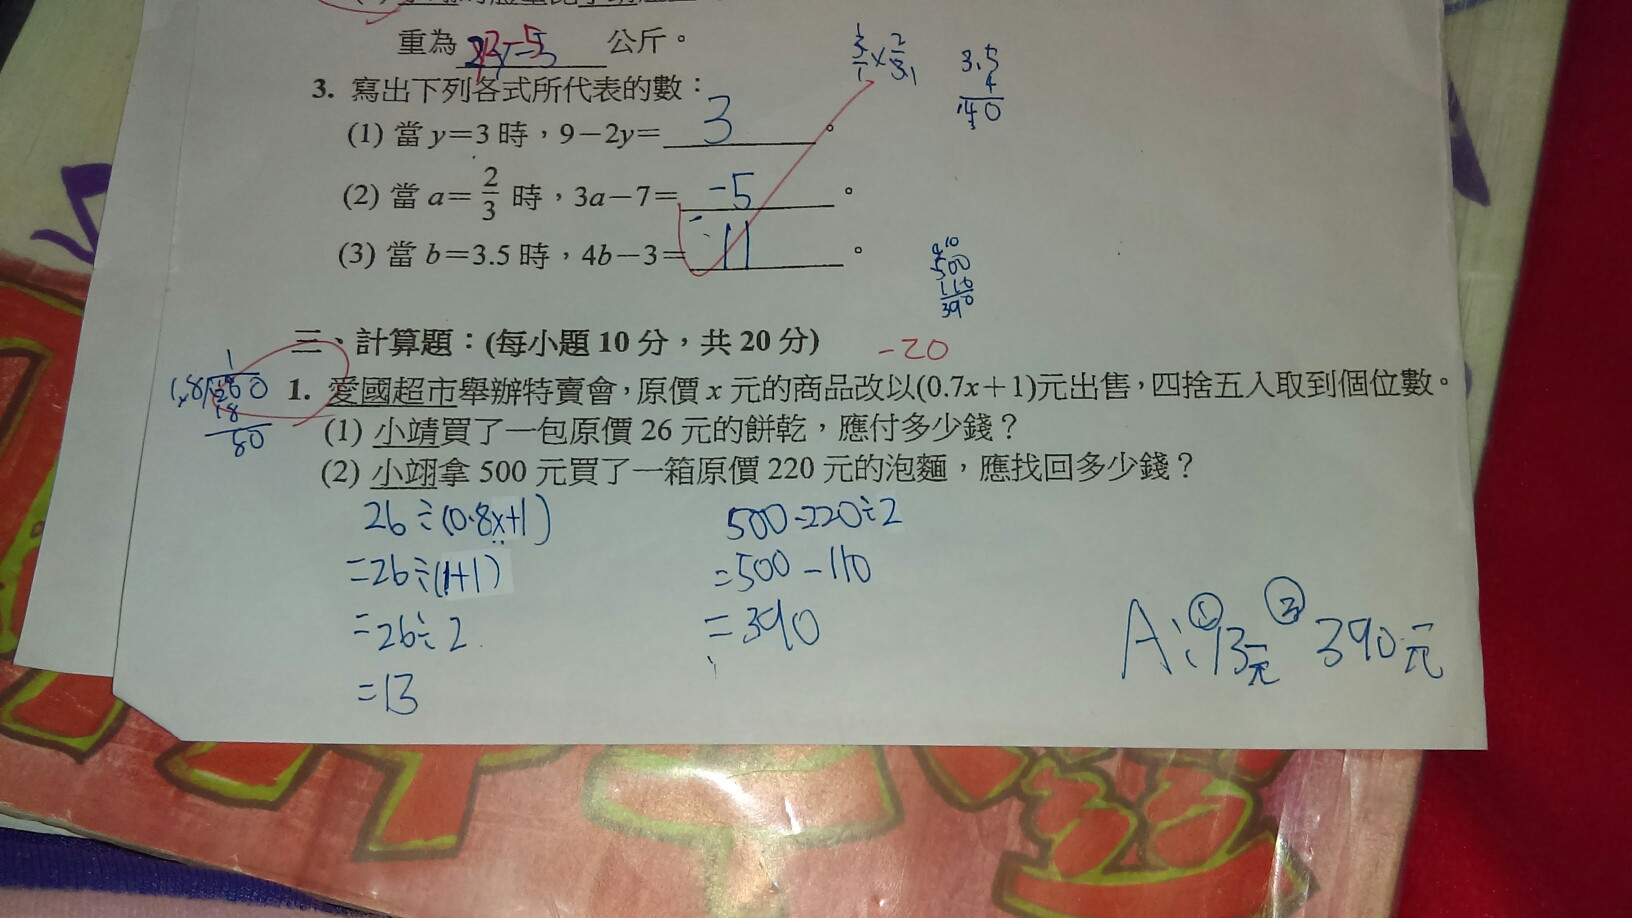 重為 公斤。
3. 寫出下列各式所代表的數：
(1) 當 y=3 時，9−2y= 3 。
(2) 當 a=2/3 時，3a−7= -5 。
(3) 當 b=3.5 時，4b−3= 11 。
3.5
4
140
500
110
390
三、計算題：(每小題 10 分，共 20 分) -20
1. 愛國超市舉辦特賣會，原價 x 元的商品改以(0.7x+1)元出售，四捨五入取到個位數。
(1) 小靖買了一包原價 26 元的餅乾，應付多少錢？
(2) 小翊拿 500 元買了一箱原價 220 元的泡麵，應找回多少錢？
26÷(0.8x+1)
=26÷(1+1)
=26÷2
=13
500-220÷2
=500-110
=390
A:①13元 ②390元